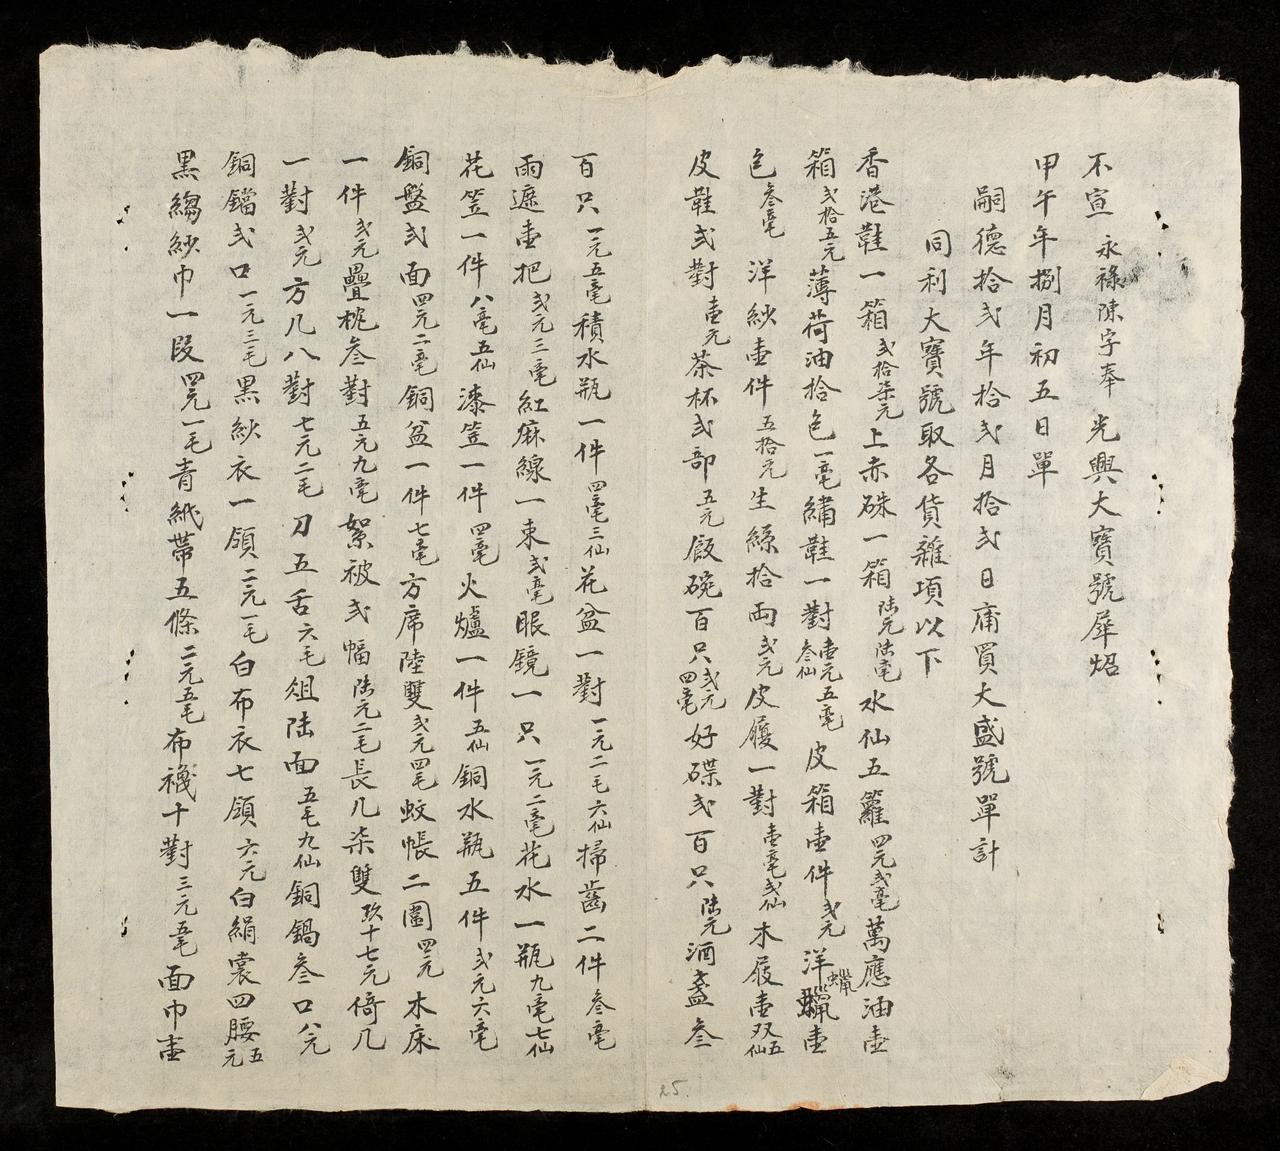 不宣 永祿陳字奉 光興大寶號犀炤
甲午年捌月初五日單
嗣德拾弍年拾弍月拾弍日庯買大盛號單計
同利大寶號取各貨雜項以下
香港鞋一箱弍拾柒元上赤硃一箱陸元陸毫水仙五籮四元弍毫萬應油壹
箱弍拾五元薄荷油拾色一毫繡鞋一對壹元五毫叁仙皮箱壹件弍元洋蠟蠟壹
色叁毫 洋紗壹件五拾元生絲拾両弍元皮履一對壹毫弍仙木屐壹双五仙
皮鞋弍對壹元茶杯弍部五元飯碗百只弍元四毫好碟弍百只陸元酒盞叁
百只一元五毫積水瓶一件四毫三仙花盆一對一元二毛六仙掃齒二件叁毫
雨遮壹把弍元三毫紅麻線一束弍毫眼鏡一只一元二毫花水一瓶九毫七仙
花笠一件八毫五仙漆笠一件四毫火爐一件五仙銅水瓶五件弍元六毫
銅盤弍面四元二毫銅盆一件七毫方席陸雙弍元四毛蚊帳二圍四元木床
一件弍元疊桄叁對五元九毫絮被弍幅陸元二毛長几柒雙玖十七元倚几
一對弍元方几八對七元二毛刀五舌六毛俎陸面五毛九仙銅鍋叁口八元
銅鐺弍口一元三毛黑紗衣一領二元一毛白布衣七領六元白絹裳四腰五元
黑縐紗巾一段四元一毛青紙帶五條二元五毛布襪十對三元五毛面巾壹
25.